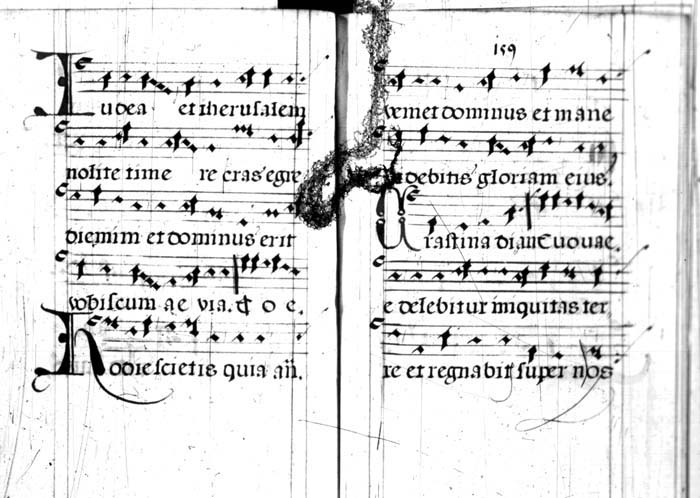 Iudea et iherusalem
nolite time re cras egre
diemim et dominus erit
vobiscum ae via. ꝶ o e.
Hodie scietis quia añ.
159
vemet dominus et mane
debitis gloriam eius.
Crastina die
e delebitur iniquitas ter
re et regnabit super nos